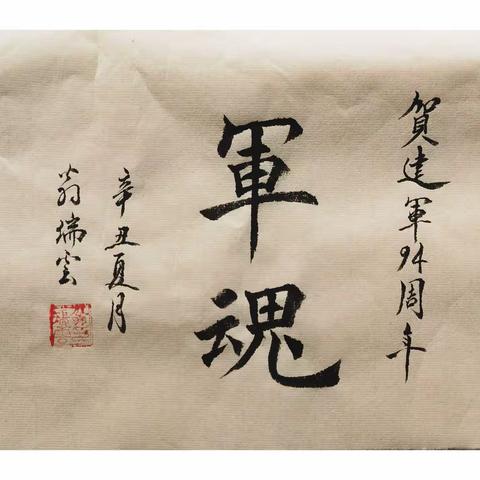 賀建軍94周年
軍魂
辛丑夏月
翁瑞雲